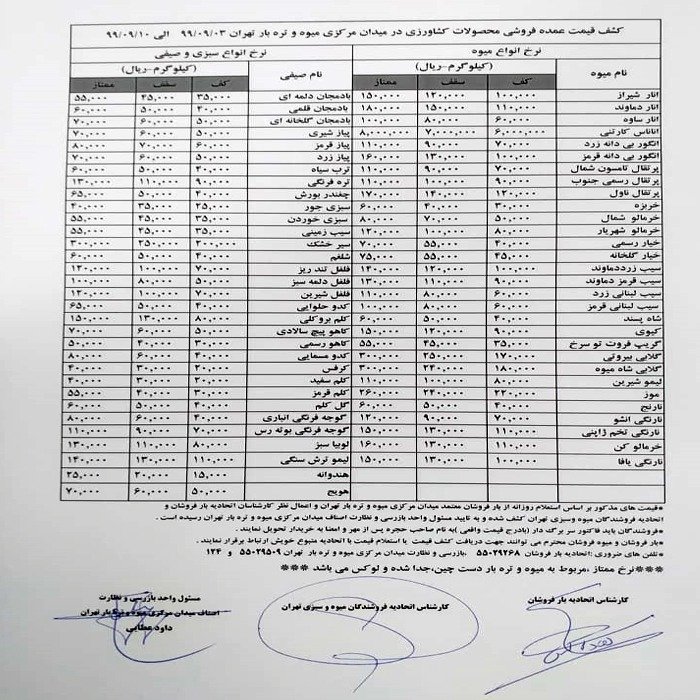 کشف قیمت عمده فروشی محصولات کشاورزی در میدان مرکزی میوه و تره بار تهران ۹۹/۰۹/۰۳ الی ۹۹/۰۹/۱۰
نرخ انواع میوه نرخ انواع سبزی و صیفی
نام میوه (کیلوگرم-ریال) نام صیفی (کیلوگرم-ریال)
کف سقف ممتاز کف سقف ممتاز
انار شیراز ۱۰۰,۰۰۰ ۱۲۰,۰۰۰ ۱۵۰,۰۰۰ بادمجان دلمه ای ۳۵,۰۰۰ ۴۵,۰۰۰ ۵۵,۰۰۰
انار دماوند ۱۱۰,۰۰۰ ۱۵۰,۰۰۰ ۱۸۰,۰۰۰ بادمجان قلمی ۴۰,۰۰۰ ۵۰,۰۰۰ ۶۰,۰۰۰
انار ساوه ۶۰,۰۰۰ ۸۰,۰۰۰ ۱۰۰,۰۰۰ بادمجان گلخانه ای ۵۰,۰۰۰ ۶۰,۰۰۰ ۷۰,۰۰۰
آناناس کارتنی ۶,۰۰۰,۰۰۰ ۷,۰۰۰,۰۰۰ ۸,۰۰۰,۰۰۰ پیاز شیری ۵۰,۰۰۰ ۶۰,۰۰۰ ۷۰,۰۰۰
انگور بی دانه زرد ۷۰,۰۰۰ ۹۰,۰۰۰ ۱۱۰,۰۰۰ پیاز قرمز ۶۰,۰۰۰ ۷۰,۰۰۰ ۸۰,۰۰۰
انگور بی دانه قرمز ۱۰۰,۰۰۰ ۱۳۰,۰۰۰ ۱۶۰,۰۰۰ پیاز زرد ۵۰,۰۰۰ ۶۰,۰۰۰ ۷۰,۰۰۰
پرتقال تامسون شمال ۷۰,۰۰۰ ۹۰,۰۰۰ ۱۱۰,۰۰۰ ترب سیاه ۴۰,۰۰۰ ۵۰,۰۰۰ ۶۰,۰۰۰
پرتقال رسمی جنوب ۹۰,۰۰۰ ۱۰۰,۰۰۰ ۱۱۰,۰۰۰ تره فرنگی ۹۰,۰۰۰ ۱۱۰,۰۰۰ ۱۳۰,۰۰۰
پرتقال ناول ۱۲۰,۰۰۰ ۱۴۰,۰۰۰ ۱۷۰,۰۰۰ چغندر بورش ۴۰,۰۰۰ ۵۰,۰۰۰ ۶۵,۰۰۰
خربزه ۳۰,۰۰۰ ۴۰,۰۰۰ ۶۰,۰۰۰ سبزی جور ۲۵,۰۰۰ ۳۵,۰۰۰ ۴۰,۰۰۰
خرمالو شمال ۵۰,۰۰۰ ۷۰,۰۰۰ ۸۰,۰۰۰ سبزی خوردن ۳۵,۰۰۰ ۴۵,۰۰۰ ۵۵,۰۰۰
خرمالو شهریار ۸۰,۰۰۰ ۱۰۰,۰۰۰ ۱۲۰,۰۰۰ سیب زمینی ۳۵,۰۰۰ ۴۵,۰۰۰ ۵۵,۰۰۰
خیار رسمی ۴۰,۰۰۰ ۵۵,۰۰۰ ۷۰,۰۰۰ سیر خشک ۲۰۰,۰۰۰ ۲۵۰,۰۰۰ ۳۰۰,۰۰۰
خیار گلخانه ۴۵,۰۰۰ ۵۵,۰۰۰ ۷۵,۰۰۰ شلغم ۴۰,۰۰۰ ۵۰,۰۰۰ ۶۰,۰۰۰
سیب زرددماوند ۱۰۰,۰۰۰ ۱۲۰,۰۰۰ ۱۴۰,۰۰۰ فلفل تند ریز ۷۰,۰۰۰ ۱۰۰,۰۰۰ ۱۲۰,۰۰۰
سیب قرمز دماوند ۱۱۰,۰۰۰ ۱۳۰,۰۰۰ ۱۵۰,۰۰۰ فلفل دلمه سبز ۵۰,۰۰۰ ۸۰,۰۰۰ ۱۰۰,۰۰۰
سیب لبنانی زرد ۶۰,۰۰۰ ۸۰,۰۰۰ ۱۱۰,۰۰۰ فلفل شیرین ۷۰,۰۰۰ ۱۰۰,۰۰۰ ۱۲۰,۰۰۰
سیب لبنانی قرمز ۶۰,۰۰۰ ۸۰,۰۰۰ ۱۰۰,۰۰۰ کدو حلوایی ۴۰,۰۰۰ ۵۰,۰۰۰ ۶۵,۰۰۰
شاه پسند ۴۰,۰۰۰ ۵۰,۰۰۰ ۶۰,۰۰۰ کلم بروکلی ۸۰,۰۰۰ ۱۳۰,۰۰۰ ۱۵۰,۰۰۰
کیوی ۹۰,۰۰۰ ۱۲۰,۰۰۰ ۱۵۰,۰۰۰ کاهو پیچ سالادی ۵۰,۰۰۰ ۶۰,۰۰۰ ۷۰,۰۰۰
گریپ فروت تو سرخ ۳۵,۰۰۰ ۴۵,۰۰۰ ۵۵,۰۰۰ کاهو رسمی ۳۰,۰۰۰ ۴۰,۰۰۰ ۵۰,۰۰۰
گلابی بیروتی ۱۷۰,۰۰۰ ۲۵۰,۰۰۰ ۳۰۰,۰۰۰ کدو مسمایی ۴۰,۰۰۰ ۶۰,۰۰۰ ۸۰,۰۰۰
گلابی شاه میوه ۱۸۰,۰۰۰ ۲۴۰,۰۰۰ ۳۰۰,۰۰۰ کرفس ۲۰,۰۰۰ ۳۰,۰۰۰ ۴۰,۰۰۰
لیمو شیرین ۸۰,۰۰۰ ۱۰۰,۰۰۰ ۱۱۰,۰۰۰ کلم سفید ۲۰,۰۰۰ ۳۰,۰۰۰ ۴۰,۰۰۰
موز ۲۲۰,۰۰۰ ۲۴۰,۰۰۰ ۲۶۰,۰۰۰ کلم قرمز ۳۰,۰۰۰ ۴۰,۰۰۰ ۵۵,۰۰۰
نارنج ۴۰,۰۰۰ ۵۰,۰۰۰ ۶۰,۰۰۰ گل کلم ۴۰,۰۰۰ ۵۰,۰۰۰ ۶۰,۰۰۰
نارنگی انشو ۷۰,۰۰۰ ۹۰,۰۰۰ ۱۲۰,۰۰۰ گوجه فرنگی انباری ۴۰,۰۰۰ ۶۰,۰۰۰ ۸۰,۰۰۰
نارنگی تخم ژاپنی ۱۱۰,۰۰۰ ۱۳۰,۰۰۰ ۱۵۰,۰۰۰ گوجه فرنگی بوته رس ۷۰,۰۰۰ ۹۰,۰۰۰ ۱۱۰,۰۰۰
خرمالو کن ۱۱۰,۰۰۰ ۱۳۰,۰۰۰ ۱۶۰,۰۰۰ لوبیا سبز ۸۰,۰۰۰ ۱۱۰,۰۰۰ ۱۳۰,۰۰۰
نارنگی یافا ۱۰۰,۰۰۰ ۱۳۰,۰۰۰ ۱۵۰,۰۰۰ لیمو ترش سنگی ۱۱۰,۰۰۰ ۱۳۰,۰۰۰ ۱۴۰,۰۰۰
هندوانه ۱۵,۰۰۰ ۲۰,۰۰۰ ۲۵,۰۰۰
هویج ۵۰,۰۰۰ ۶۰,۰۰۰ ۷۰,۰۰۰
*قیمت های مذکور بر اساس استعلام روزانه از بار فروشان معتمد میدان مرکزی میوه و تره بار تهران و اعمال نظر کارشناسان اتحادیه بار فروشان و
اتحادیه فروشندگان میوه وسبزی تهران کشف شده و به تایید مسئول واحد بازرسی و نظارت اصناف میدان مرکزی میوه و تره بار تهران رسیده است.
*فروشندگان باید فاکتور سر برگ دار (بادرج قیمت واقعی )به نام صاحب حجره پس از مهر و امضا به خریدار تحویل نمایند.
*بار فروشان و میوه فروشان محترم می توانند جهت دریافت کشف قیمت یا استعلام قیمت با اتحادیه متبوع خویش ارتباط برقرار نمایند.
*تلفن های ضروری :اتحادیه بار فروشان ۵۵۰۲۹۲۶۸ .بازرسی و نظارت میدان مرکزی میوه و تره بار تهران ۵۵۰۲۹۵۰۹ و ۱۲۴
***نرخ ممتاز ،مربوط به میوه و تره بار دست چین،جدا شده و لوکس می باشد ***
کارشناس اتحادیه بار فروشان کارشناس اتحادیه فروشندگان میوه و سبزی تهران مسئول واحد بازرسی و نظارت
اصناف میدان مرکزی میوه و تره بار تهران
داود عطایی